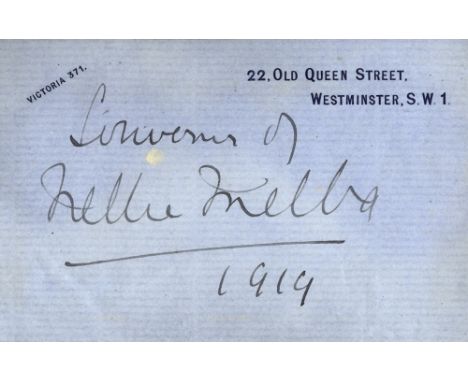 VICTORIA 371.
22, OLD QUEEN STREET,
WESTMINSTER, S.W.1.
Souvenir of
Nellie Melba
1919